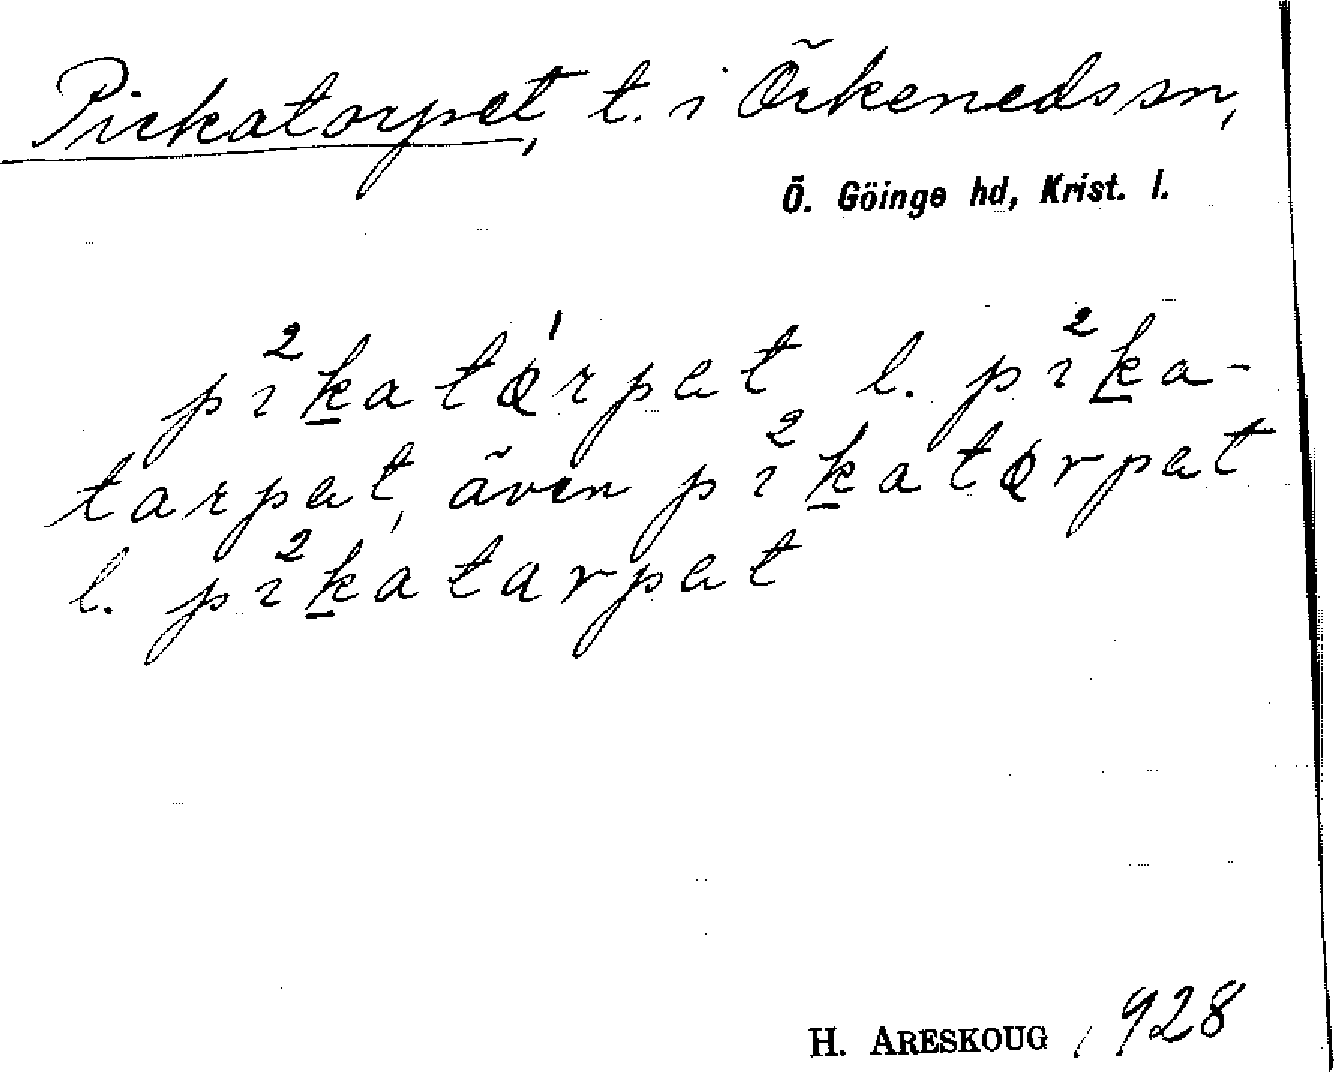 Pickatorpet, t. i Örkeneds sn,
Ö. Göinge hd, Krist. l.
pi²katǫ́rpet l. pi²ka-
tarpet, även pi²katǫrpet
l. pi²katarpet
H. ARESKOUG 1928